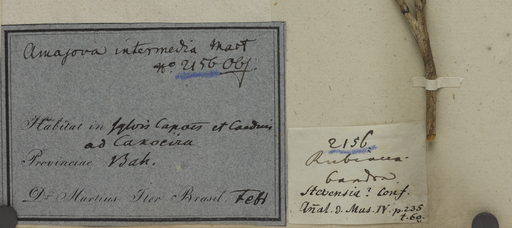 Amajova intermedia Mart
No 2156 Obs.
Habitat in sylvis Capoes et Caeduis
ad Cahoeira
Provinciae Bah.
Dr Martius Iter Brasil. Febr
2156
Rubiacea
Stevensia? Conf.
Añal. d. Mus. IV. p. 235
t. 60.